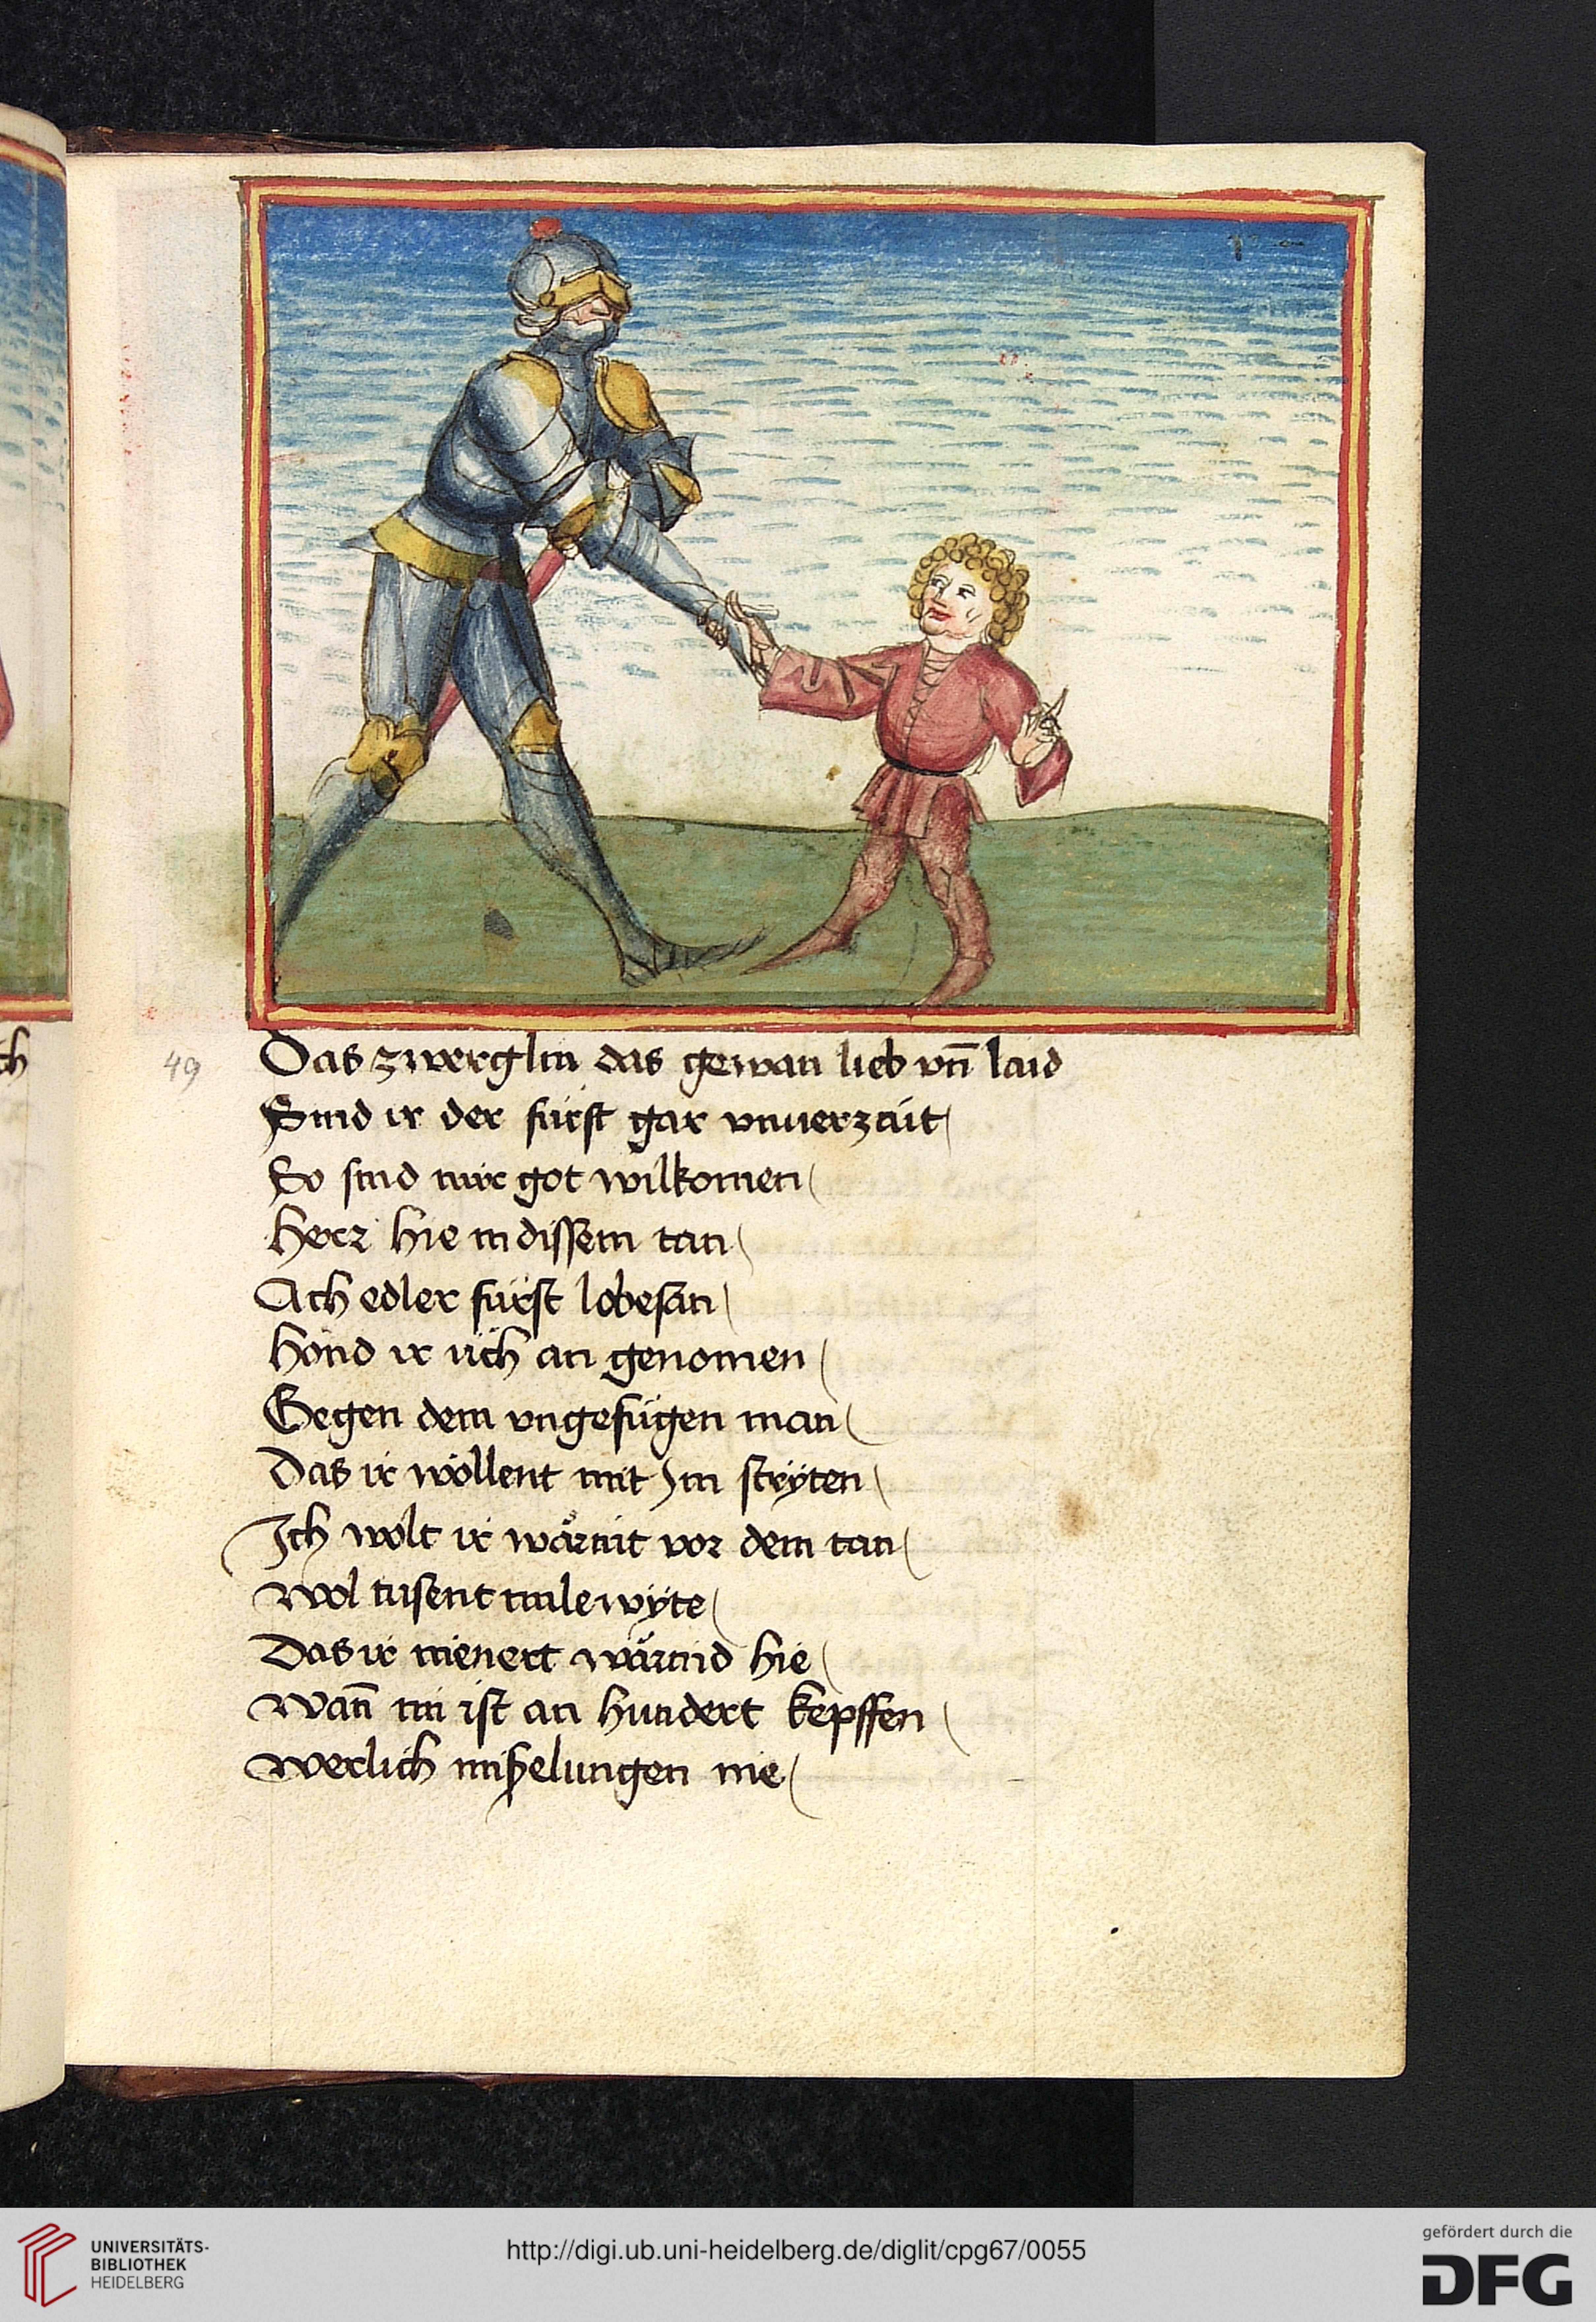 ch
49
Das zwerglin das gewan lieb vn̄ laid
Sind ir der fúrst gar vnuerzait
So sind mir got wilkomen
Herr hie in dissem tan
Ach edler fúrst lobesan
Hond ir úch an genomen
Gegen dem vngefúgen man
Das ir wöllent mit Im stryten
Ich wolt ir wärint vor dem tan
Wol tusent mile wÿte
Das ir nienert wärind hie
Wan̄ mi ist an hundert kepffen
Werlich mißelungen nie
UNIVERSITÄTS-
BIBLIOTHEK
HEIDELBERG
http://digi.ub.uni-heidelberg.de/diglit/cpg67/0055
gefördert durch die
DFG